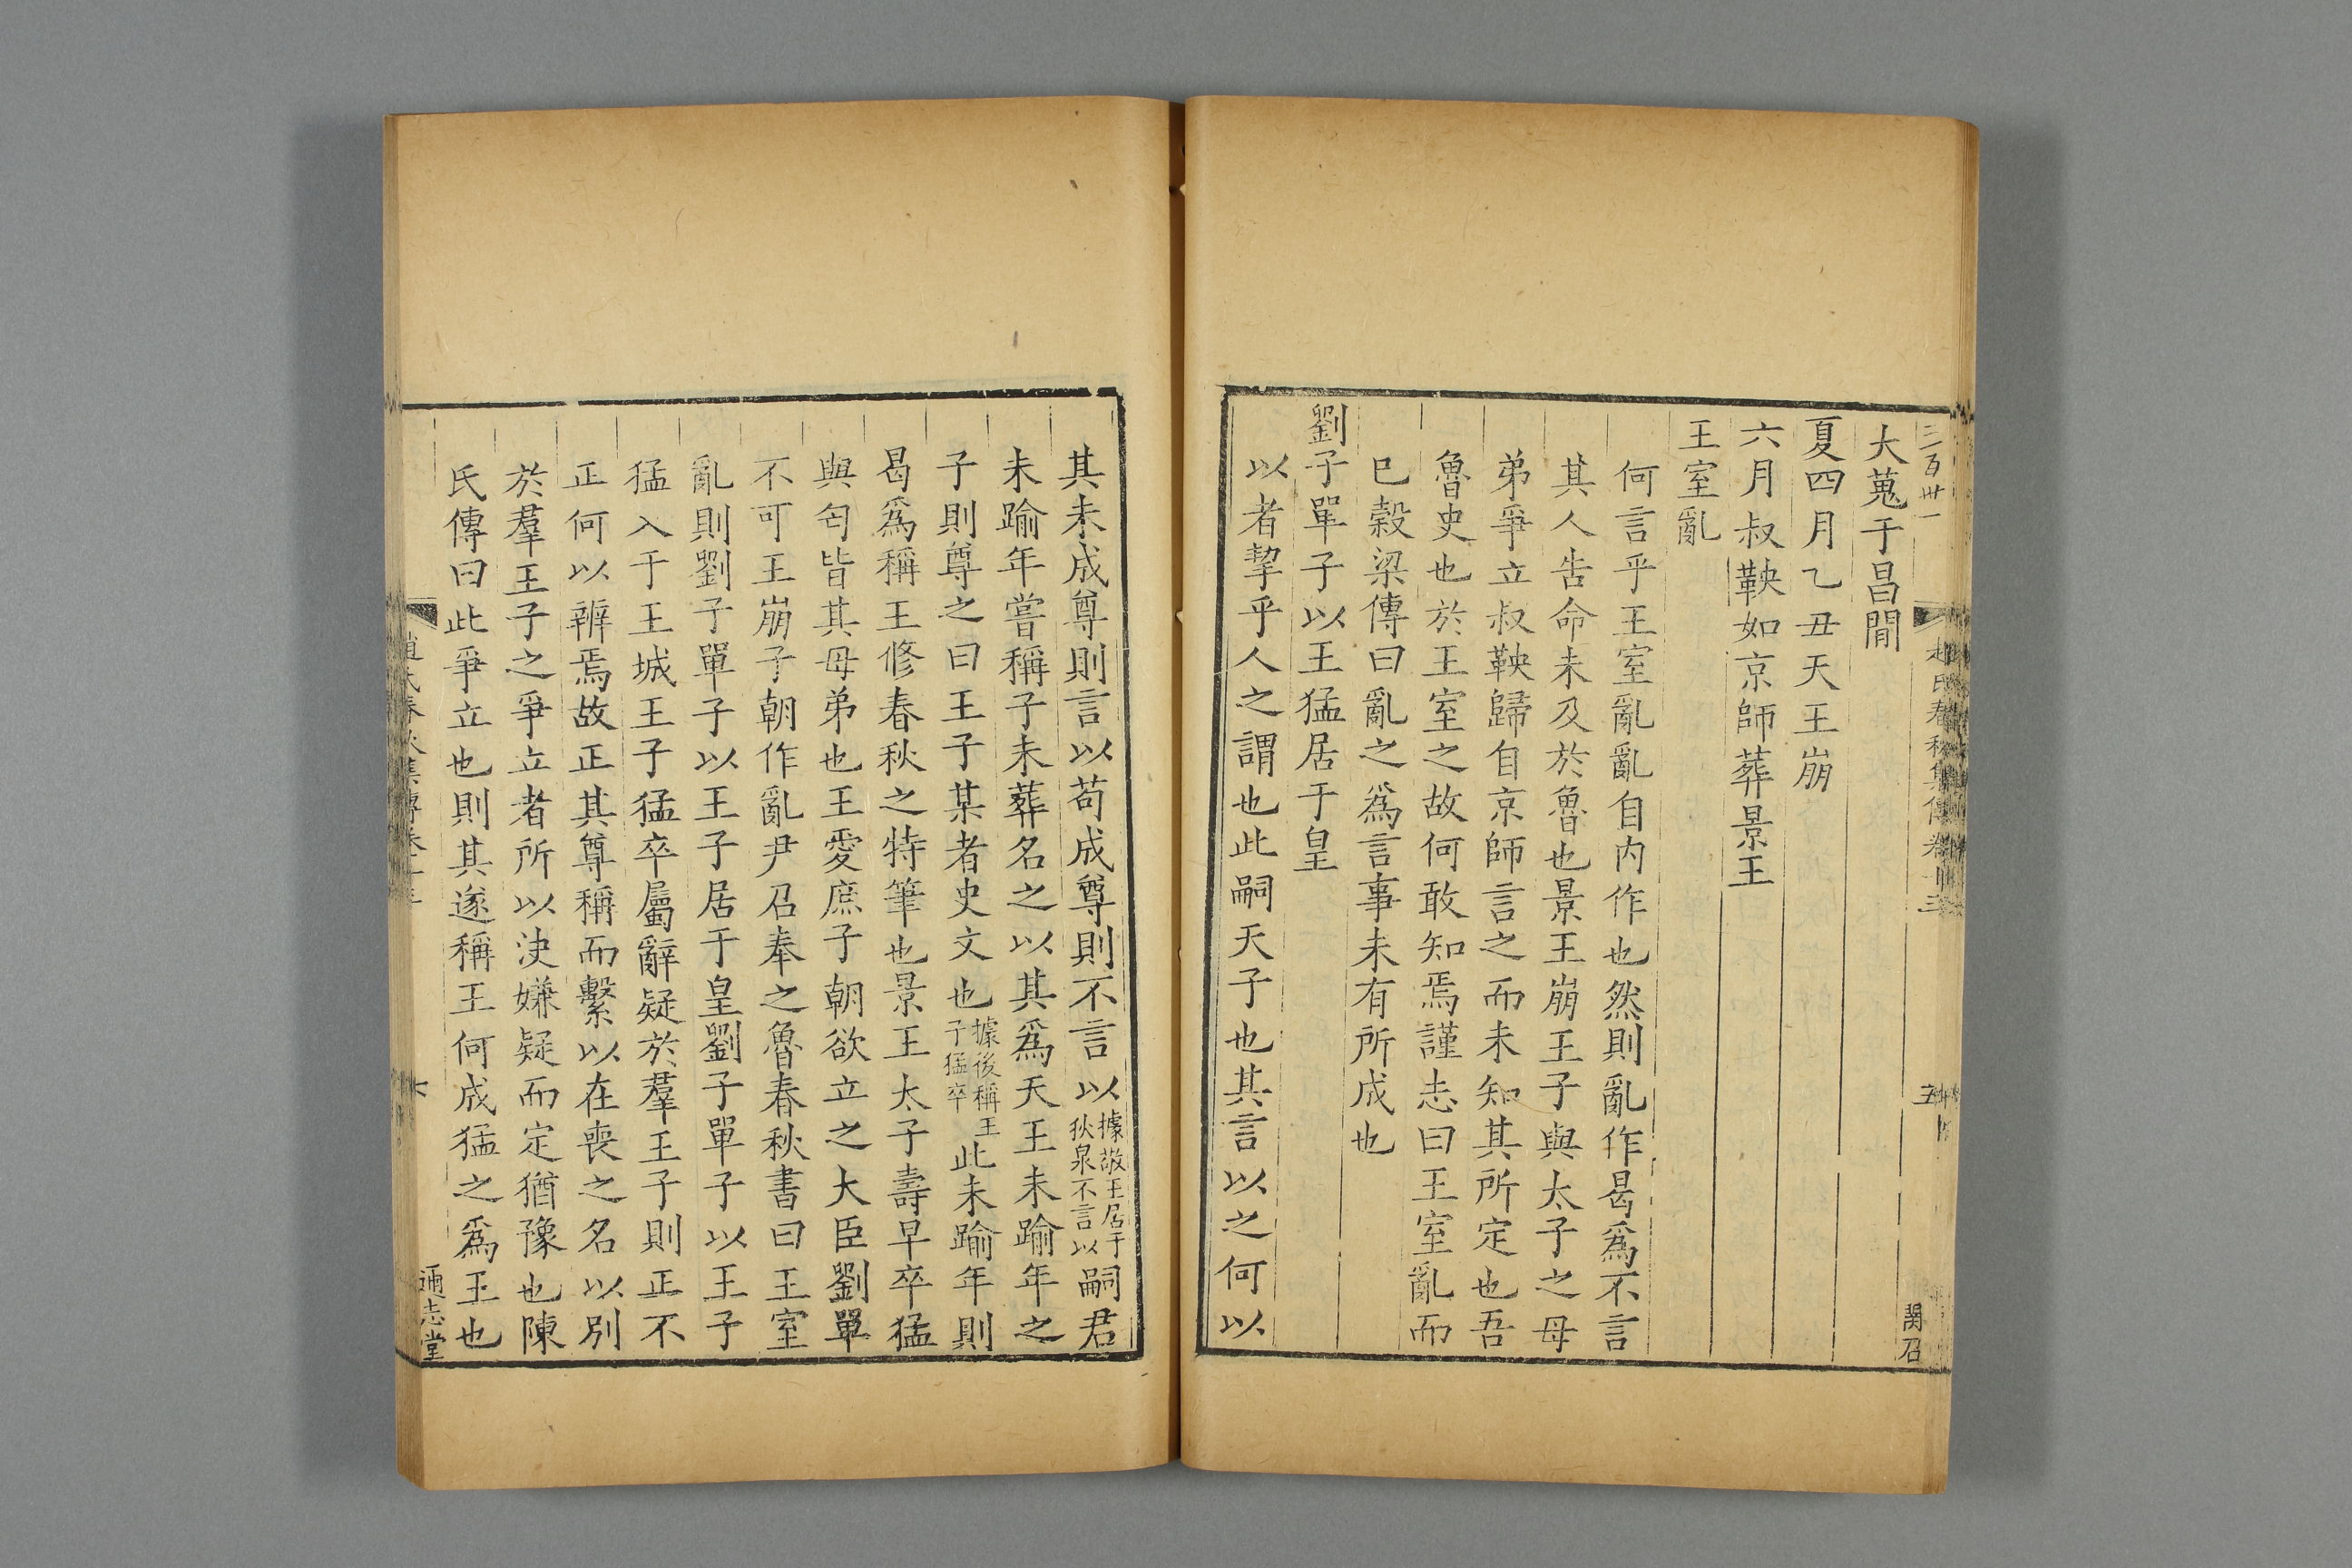 二百卅一
大蒐于昌閒
夏四月乙丑天王崩
六月叔鞅如京師葬景王
王室亂
何言乎王室亂亂自内作也然則亂作曷爲不言
其人告命未及於魯也景王崩王子與太子之母
弟爭立叔鞅歸自京師言之而未知其所定也吾
魯史也於王室之故何敢知焉謹志曰王室亂而
巳榖梁傳曰亂之爲言事未有所成也
劉子單子以王猛居于皇
以者挈乎人之謂也此嗣天子也其言以之何以
其未成尊則言以苟成尊則不言以據敬王居于狄泉不言以嗣君
未踰年嘗稱子未葬名之以其爲天王未踰年之
子則尊之曰王子某者史文也據後稱王子猛卒此未踰年則
曷爲稱王修春秋之特筆也景王太子壽早卒猛
與匄皆其母弟也王愛庶子朝欲立之大臣劉單
不可王崩子朝作亂尹召奉之魯春秋書曰王室
亂則劉子單子以王子居于皇劉子單子以王子
猛入于王城王子猛卒屬辭疑於羣王子則正不
正何以辨焉故正其尊稱而繫以在喪之名以別
於羣王子之爭立者所以决嫌疑而定猶豫也陳
氏傳曰此爭立也則其遂稱王何成猛之爲王也
通志堂